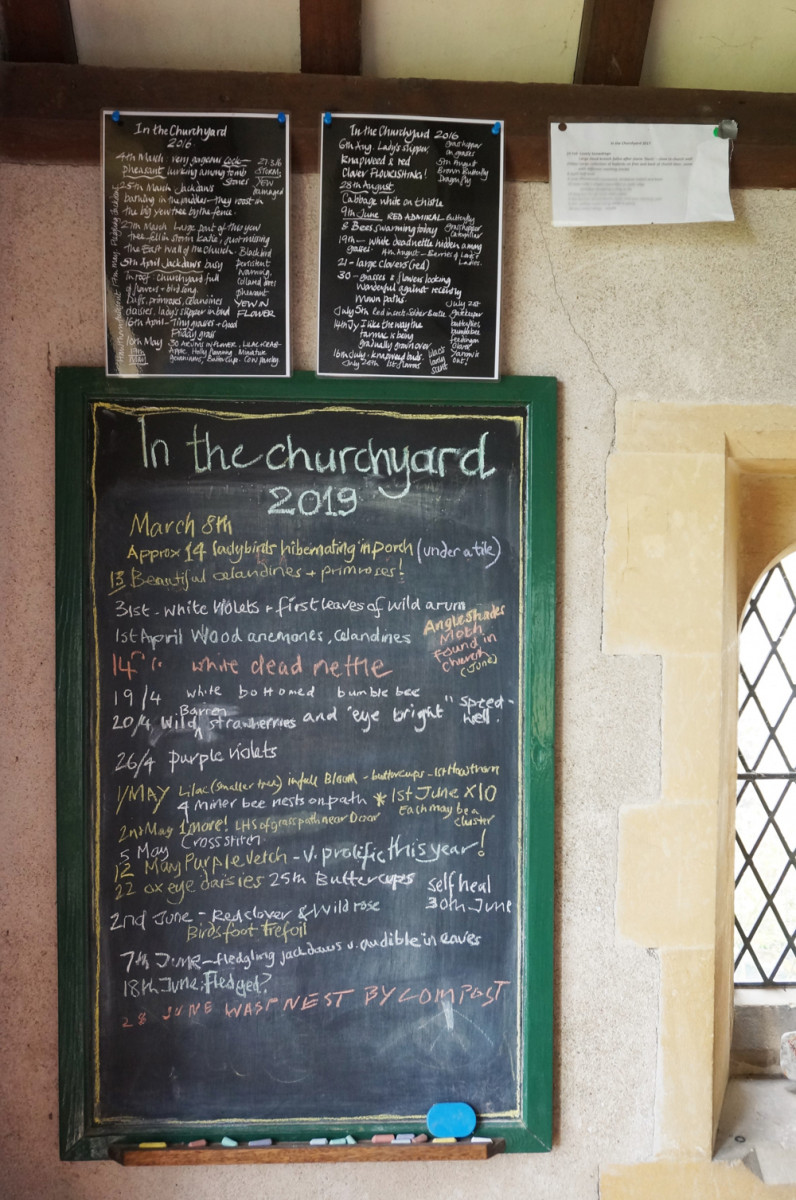 In the Churchyard
2016
4th March very gorgeous Cock-
pheasant lurking among tomb
Stones
27.3.16
STORMS
YEW
damaged
25th March Jackdaws
in the
they roost in
the big yew tree by the fence
27th March Large part of this yew
tree fell in storm Katie, just missing
The East wall of the Church.
5th April Jackdaws busy
in roof. Churchyard full
of flowers + bird song
Daffs, primroses, celandines
daisies, lady's slipper in bud
Blackbird
persistent
warning.
Collared doves
pheasant
YEW IN
FLOWER
16th April - Tiny grasses + Good
Friday grass
10th May
in flower, LILAC, CRAB-
Apple, Holly flowering Miniature
geraniums, Buttercups - Cow parsley
19th
MAY
In the Churchyard 2016
6th Aug. Lady's slipper,
Knapweed & red
Clover FLOURISHING!
28th August
Cabbage white on thistle
grasshopper
on grasses
5th August
Brown Butterfly
Dragonfly
9th June RED ADMIRAL Butterfly
& Bees swarming today
grasshopper
caterpillar
19th - white dead nettle hidden among
grasses
4th August - Berries of Lords &
Ladies.
21 - large clovers (red)
30 - grasses & flowers looking
Wonderful against recently
mown paths.
July 5th Red insects - Soldier Beetle
14th Jy - I like the way the
tarmac is being
gradually grown over.
16th July - knapweed buds.
July 20th 1st flowers
July 21st
gatekeeper
butterflies
bumble bee
feeding on
clover
Yarrow is
out!
In the Churchyard 2017
In the churchyard
2019
March 8th
Approx 14 ladybirds hibernating in porch (under a tile)
13 Beautiful celandines + primroses!
31st - white violets + first leaves of wild arum
1st April Wood anemones, celandines
Angle Shades
Moth
found in
Church
(June)
14 " white dead nettle
19/4 white bottomed bumble bee
20/4 Wild, Barren strawberries and 'eye bright' " Speed-
well.
26/4 purple violets
1/MAY Lilac (smaller tree) in full Bloom - buttercups - 1st Hawthorn
4 Miner bee nests on path * 1st June X10
Each may be a
cluster
2nd May 1 more! LHS of grass path near Door
5 May Cross stitch
12 May Purple Vetch - v. prolific this year!
22 ox eye daisies 25th Buttercups
self heal
30th June
2nd June - Red clover & Wild rose
Birds foot trefoil
7th June - fledgling jackdaws v. audible in eaves
18th June; Fledged?
28 JUNE WASP NEST BY COMPOST